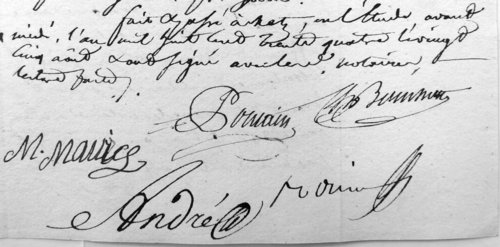 fait & passé à metz, en l'Etude, avant
midi, l'an mil huit cent trente quatre le vingt
cinq août & ont signé avec les notaires,
lecture faite
Pomain
M. Mavics
André